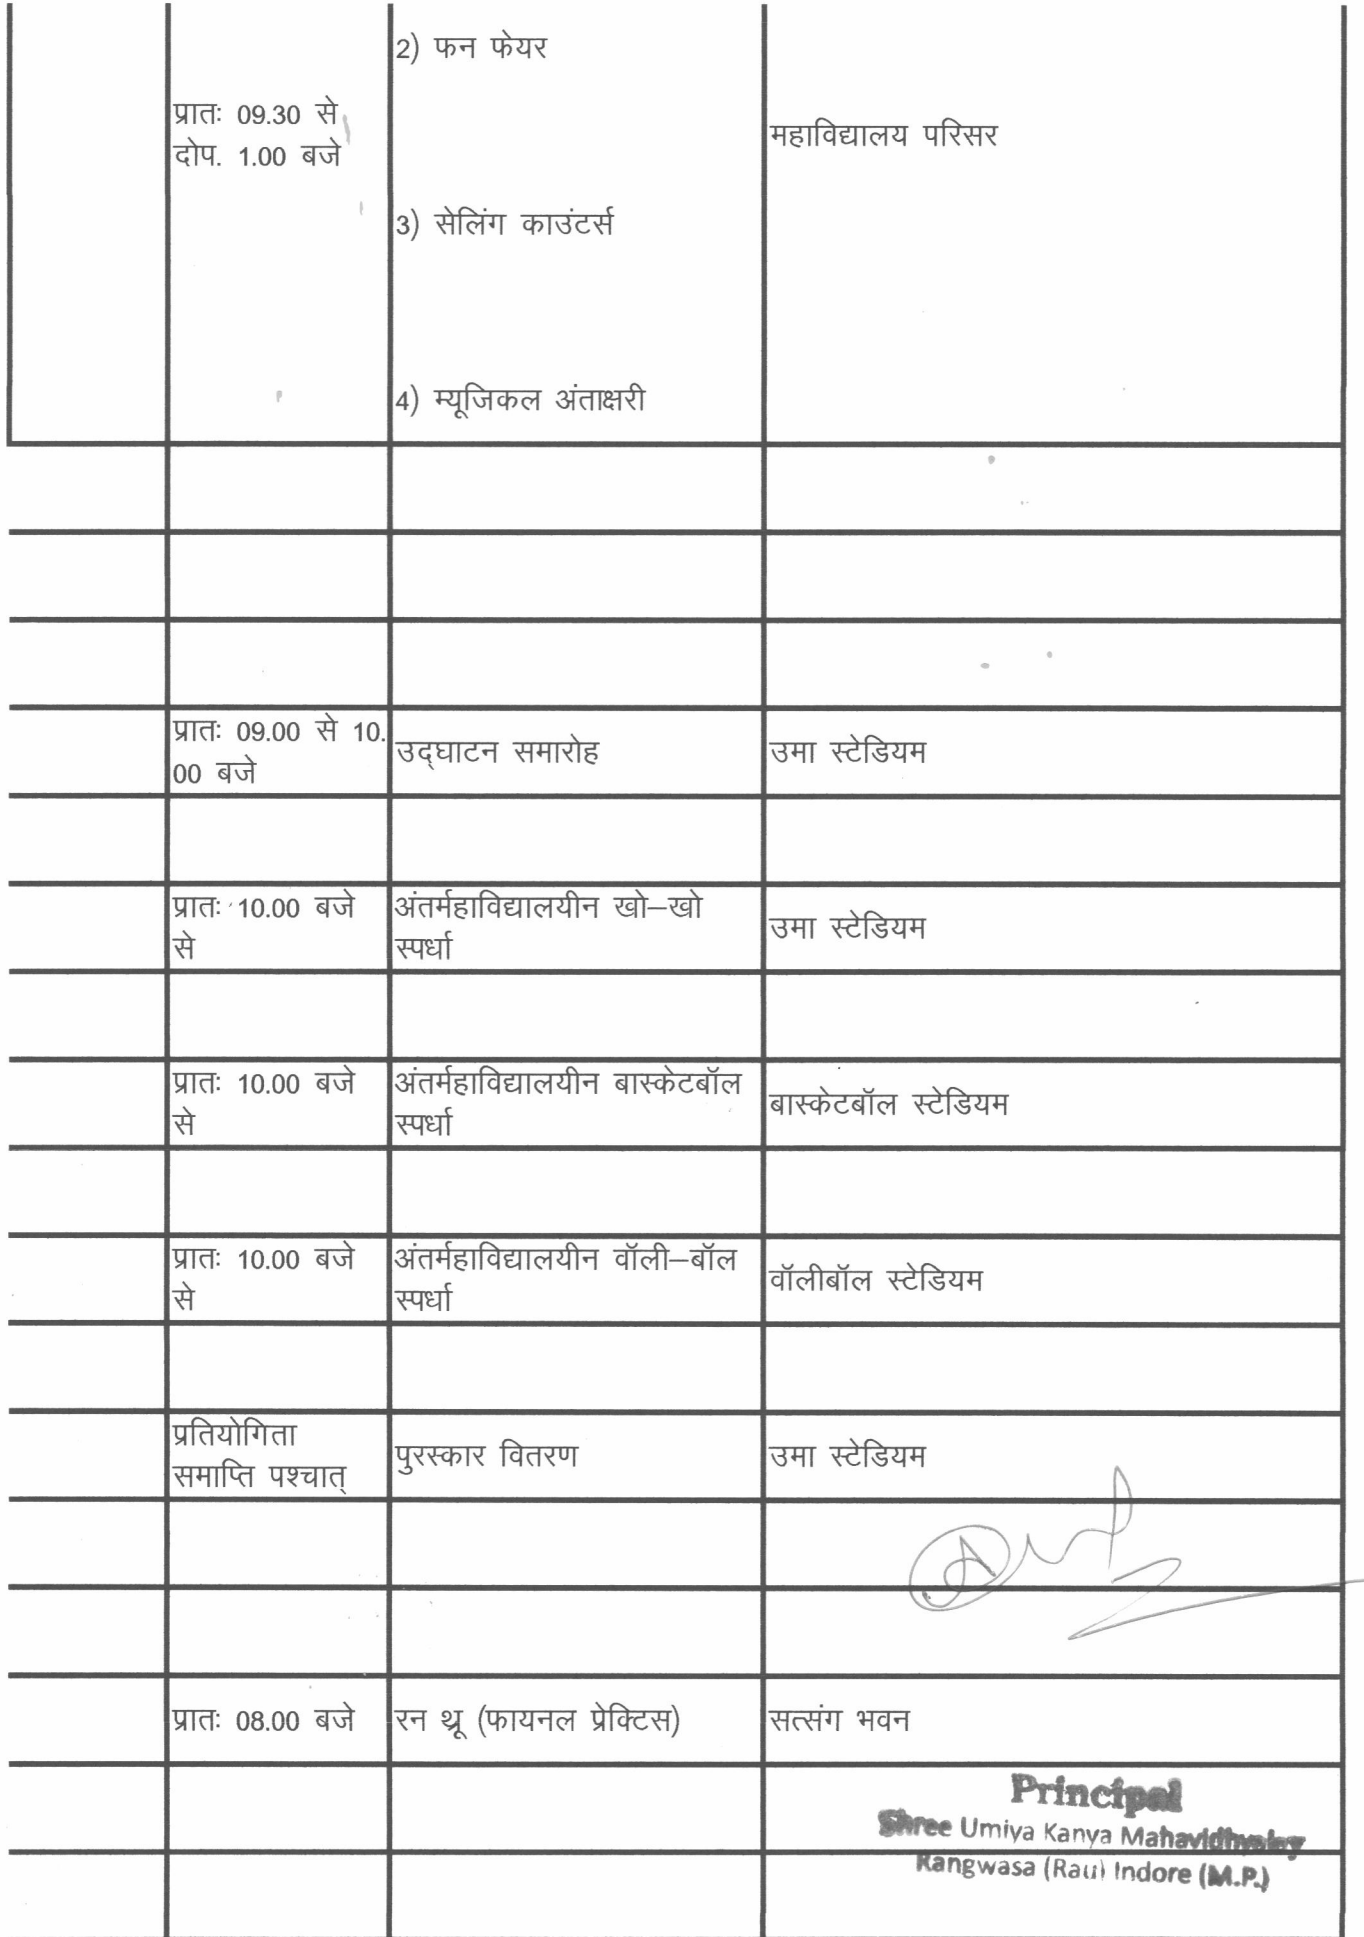 2) फन फेयर
प्रातः 09.30 से
दोप. 1.00 बजे
महाविद्यालय परिसर
3) सेलिंग काउंटर्स
4) म्यूजिकल अंताक्षरी
प्रातः 09.00 से 10.
00 बजे
उद्घाटन समारोह
उमा स्टेडियम
प्रातः 10.00 बजे
से
अंतर्महाविद्यालयीन खो–खो
स्पर्धा
उमा स्टेडियम
प्रातः 10.00 बजे
से
अंतर्महाविद्यालयीन बास्केटबॉल
स्पर्धा
बास्केटबॉल स्टेडियम
प्रातः 10.00 बजे
से
अंतर्महाविद्यालयीन वॉली–बॉल
स्पर्धा
वॉलीबॉल स्टेडियम
प्रतियोगिता
समाप्ति पश्चात्
पुरस्कार वितरण
उमा स्टेडियम
प्रातः 08.00 बजे
रन थ्रू (फायनल प्रेक्टिस)
सत्संग भवन
Principal
Shree Umiya Kanya Mahavidhyalay
Rangwasa (Rau) Indore (M.P.)